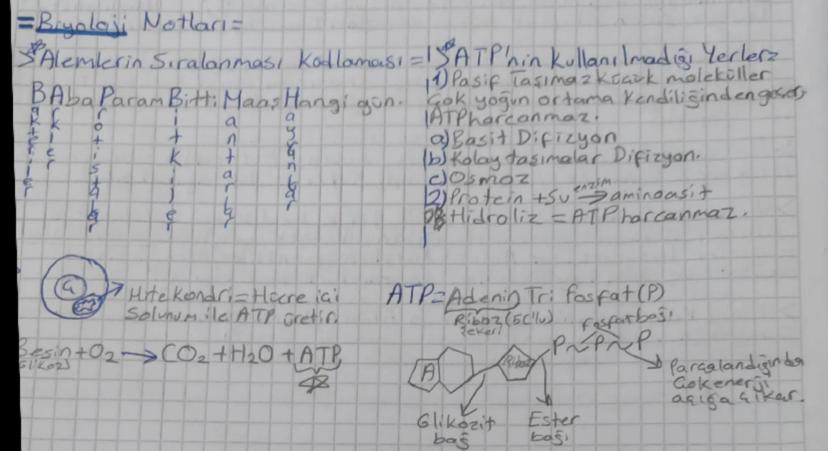 =Biyoloji Notları=
Alemlerin Sıralanması Kodlaması =
BAba Param Bitti Maaş Hangi gün.
Bakteriler
Arkeler
Protistalar
Bitkiler
Mantarlar
Hayvanlar
ATP'nin Kullanılmadığı Yerler
1) Pasif Taşıma Küçük moleküller
Çok yoğun ortama Kendiliğinden geçer,
ATP harcanmaz.
a) Basit Difizyon
b) Kolaylaştırılmış Difizyon.
c) Osmoz
2) Protein + Su enzim → aminoasit
Hidroliz = ATP harcanmaz.
Mitekondri = Hücre içi
Solunum ile ATP üretir.
Besin + O2 → CO2 + H2O + ATP
ATP = Adenin Tri fosfat (P)
Riboz (5C'lu)
şekeri
fosfat bağı
A Riboz P~P~P
Parçalandığında
Çok enerji
açığa çıkar.
Glikozit
bağ
Ester
bağı